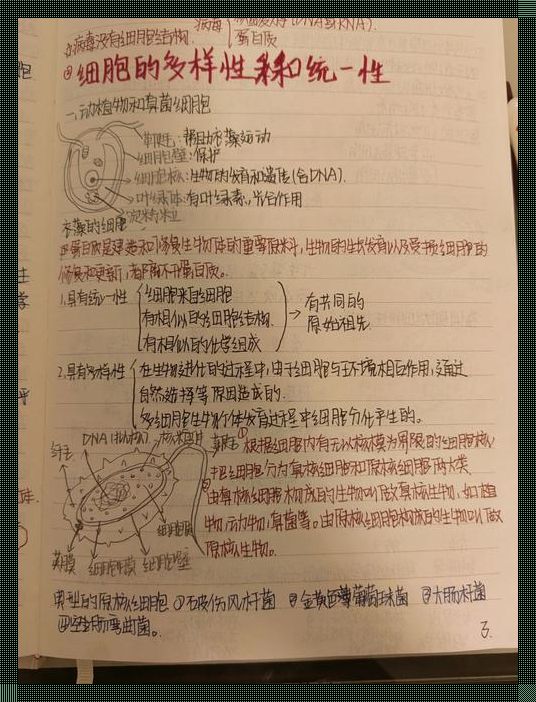 病毒 DNA或RNA).
病毒没有细胞结构. 蛋白质
细胞的多样性和统一性
一、动植物和真菌细胞
鞭毛:帮助衣藻运动
细胞壁:保护
细胞核:生物的发育和遗传(含DNA).
叶绿体:有叶绿素,光合作用
衣藻的细胞
蛋白质是建造和修复生物体的重要原料,生物的生长发育以及受损细胞的
修复和更新,都离不开蛋白质。
1.具有统一性
细胞来自细胞
有相似的细胞结构.
有相似的化学组成
有共同的
原始祖先.
2.具有多样性
在生物进化的过程中,由于细胞与环境相互作用,通过
自然选择等原因造成的.
多细胞生物个体发育过程中细胞分化产生的。
DNA(拟核) 核糖体 鞭毛
①根据细胞内有无以核膜为界限的细胞核,
把细胞分为真核细胞和原核细胞两大类
②由真核细胞构成的生物叫做真核生物,如植
物,动物,真菌等。由原核细胞构成的生物叫做
原核生物。
荚膜 细胞膜 细胞壁
典型的原核细胞 ①破伤风杆菌 ②金黄色葡萄球菌 ③大肠杆菌
弯曲菌。
3.